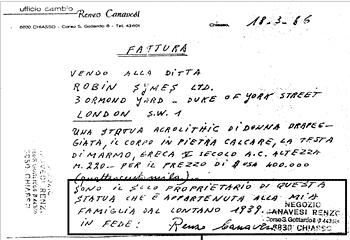 ufficio cambio Renzo Canavesi
6830 CHIASSO - Corso S. Gottardo 8 - Tel. 43401
Chiasso, 18-3-86
FATTURA
VENDO ALLA DITTA
ROBIN SYMES LTD.
3 ORMOND YARD - DUKE OF YORK STREET
LONDON S.W. 1
UNA STATUA ACROLITHIC DI DONNA DRAPEG-
GIATA, IL CORPO IN PIETRA CALCARE, LA TESTA
DI MARMO, GRECA V SECOLO A.C. ALTEZZA
M. 220.- PER IL PREZZO DI 400.000
SONO IL SOLO PROPRIETARIO DI QUESTA
STATUA CHE È APPARTENUTA ALLA MIA
FAMIGLIA DAL LONTANO 1939.
IN FEDE: Renzo Canavesi
NEGOZIO
CANAVESI RENZO
6830 CHIASSO